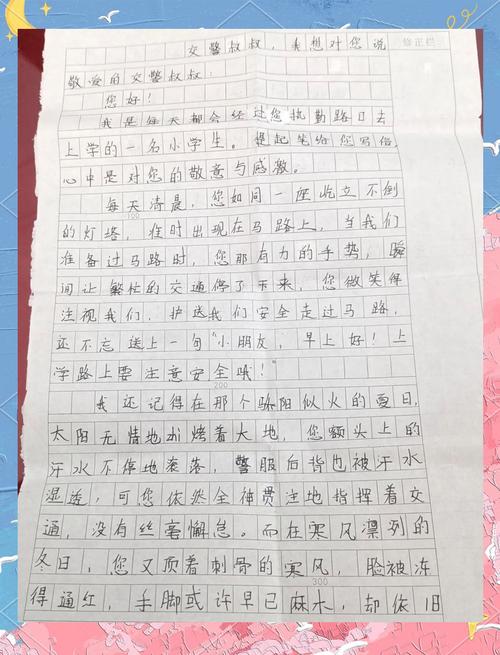 交警叔叔，我想对您说
修正栏
敬爱的交警叔叔：
您好！
我是每天都会经过您执勤路口去
上学的一名小学生。提起笔给您写信，
心中是对您的敬意与感激。
每天清晨，您如同一座屹立不倒
的灯塔，准时出现在马路上，当我们
100
准备过马路时，您那有力的手势，瞬
间让繁忙的交通停了下来，您微笑得
注视我们，护送我们安全走过马路，
还不忘送上一句“小朋友，早上好！上
学路上要注意安全哦！”
200
我还记得在那个骄阳似火的夏日，
太阳无情地炙烤着大地，您额头上的
汗水不停地滚落，警服后背也被汗水
湿透，可您依然全神贯注地指挥着交
通，没有丝毫懈怠。而在寒风凛冽的
冬日，您又顶着刺骨的寒风，脸被冻
300
得通红，手脚或许早已麻木，却依旧